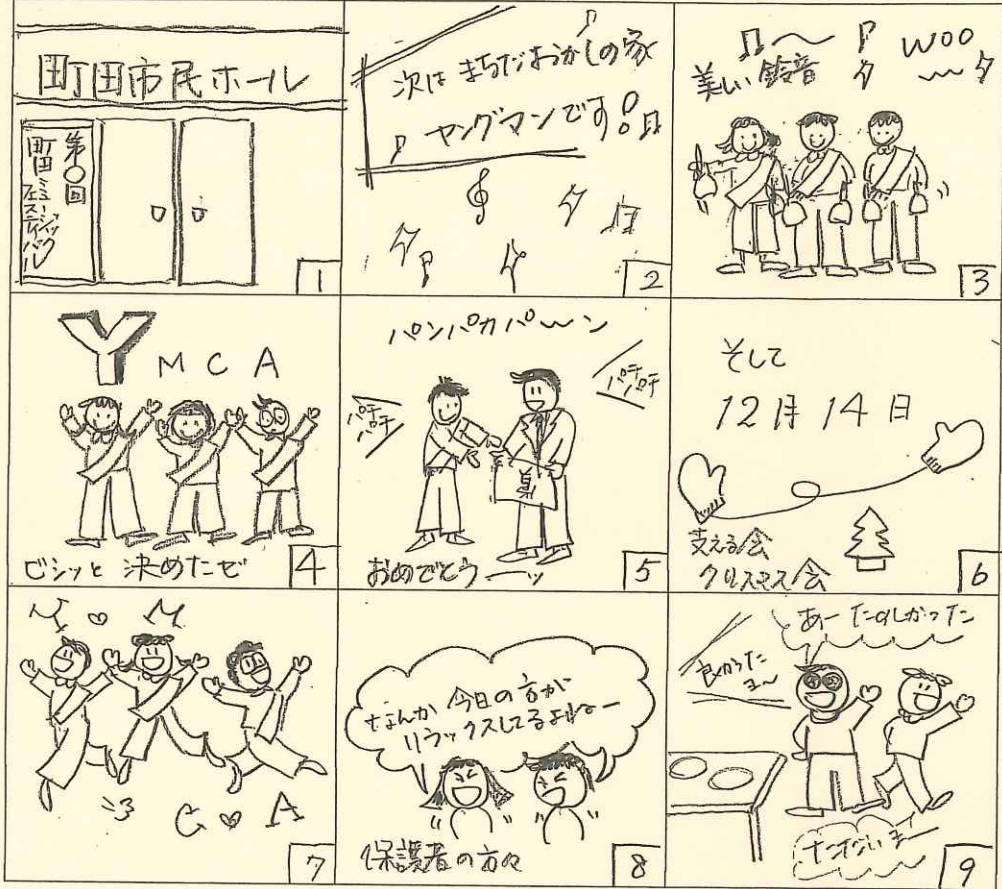 町田市民ホール
第〇回
町田ミュージック
フェスティバル
1
次は まちだおかしの家
ヤングマンです!
2
美しい鈴音
WOO
3
Y M C A
ビシッと 決めたぜ
4
パンパカパ〜ン
パチパチ
パチパチ
賞
おめでとうーッ
5
そして
12月14日
支える会
クリスマス会
6
Y♡M
C♡A
7
なんか 今日の方が
リラックスしてるよねー
保護者の方々
8
あー たのしかった
良かった
よ〜
ただいまー
9